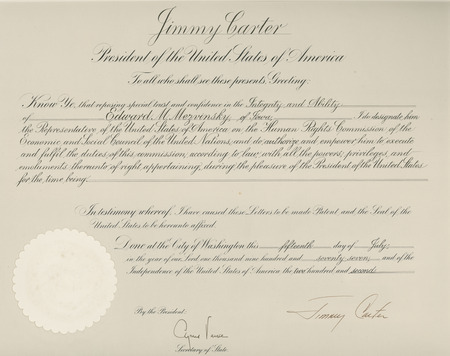 Jimmy Carter
President of the United States of America
To all who shall see these presents, Greeting:
Know Ye, that reposing special trust and confidence in the Integrity and Ability
of Edward M. Mezvinsky, of Iowa, I do designate him
the Representative of the United States of America on the Human Rights Commission of the
Economic and Social Council of the United Nations, and do authorize and empower him to execute
and fulfil the duties of this commission, according to law, with all the powers, privileges, and
emoluments thereunto of right appertaining, during the pleasure of the President of the United States
for the time being.
In testimony whereof, I have caused these Letters to be made Patent and the Seal of the
United States to be hereunto affixed.
Done at the City of Washington this fifteenth day of July
in the year of our Lord one thousand nine hundred and seventy-seven, and of the
Independence of the United States of America the two hundred and second.
By the President:
Jimmy Carter
Cyrus Vance
Secretary of State